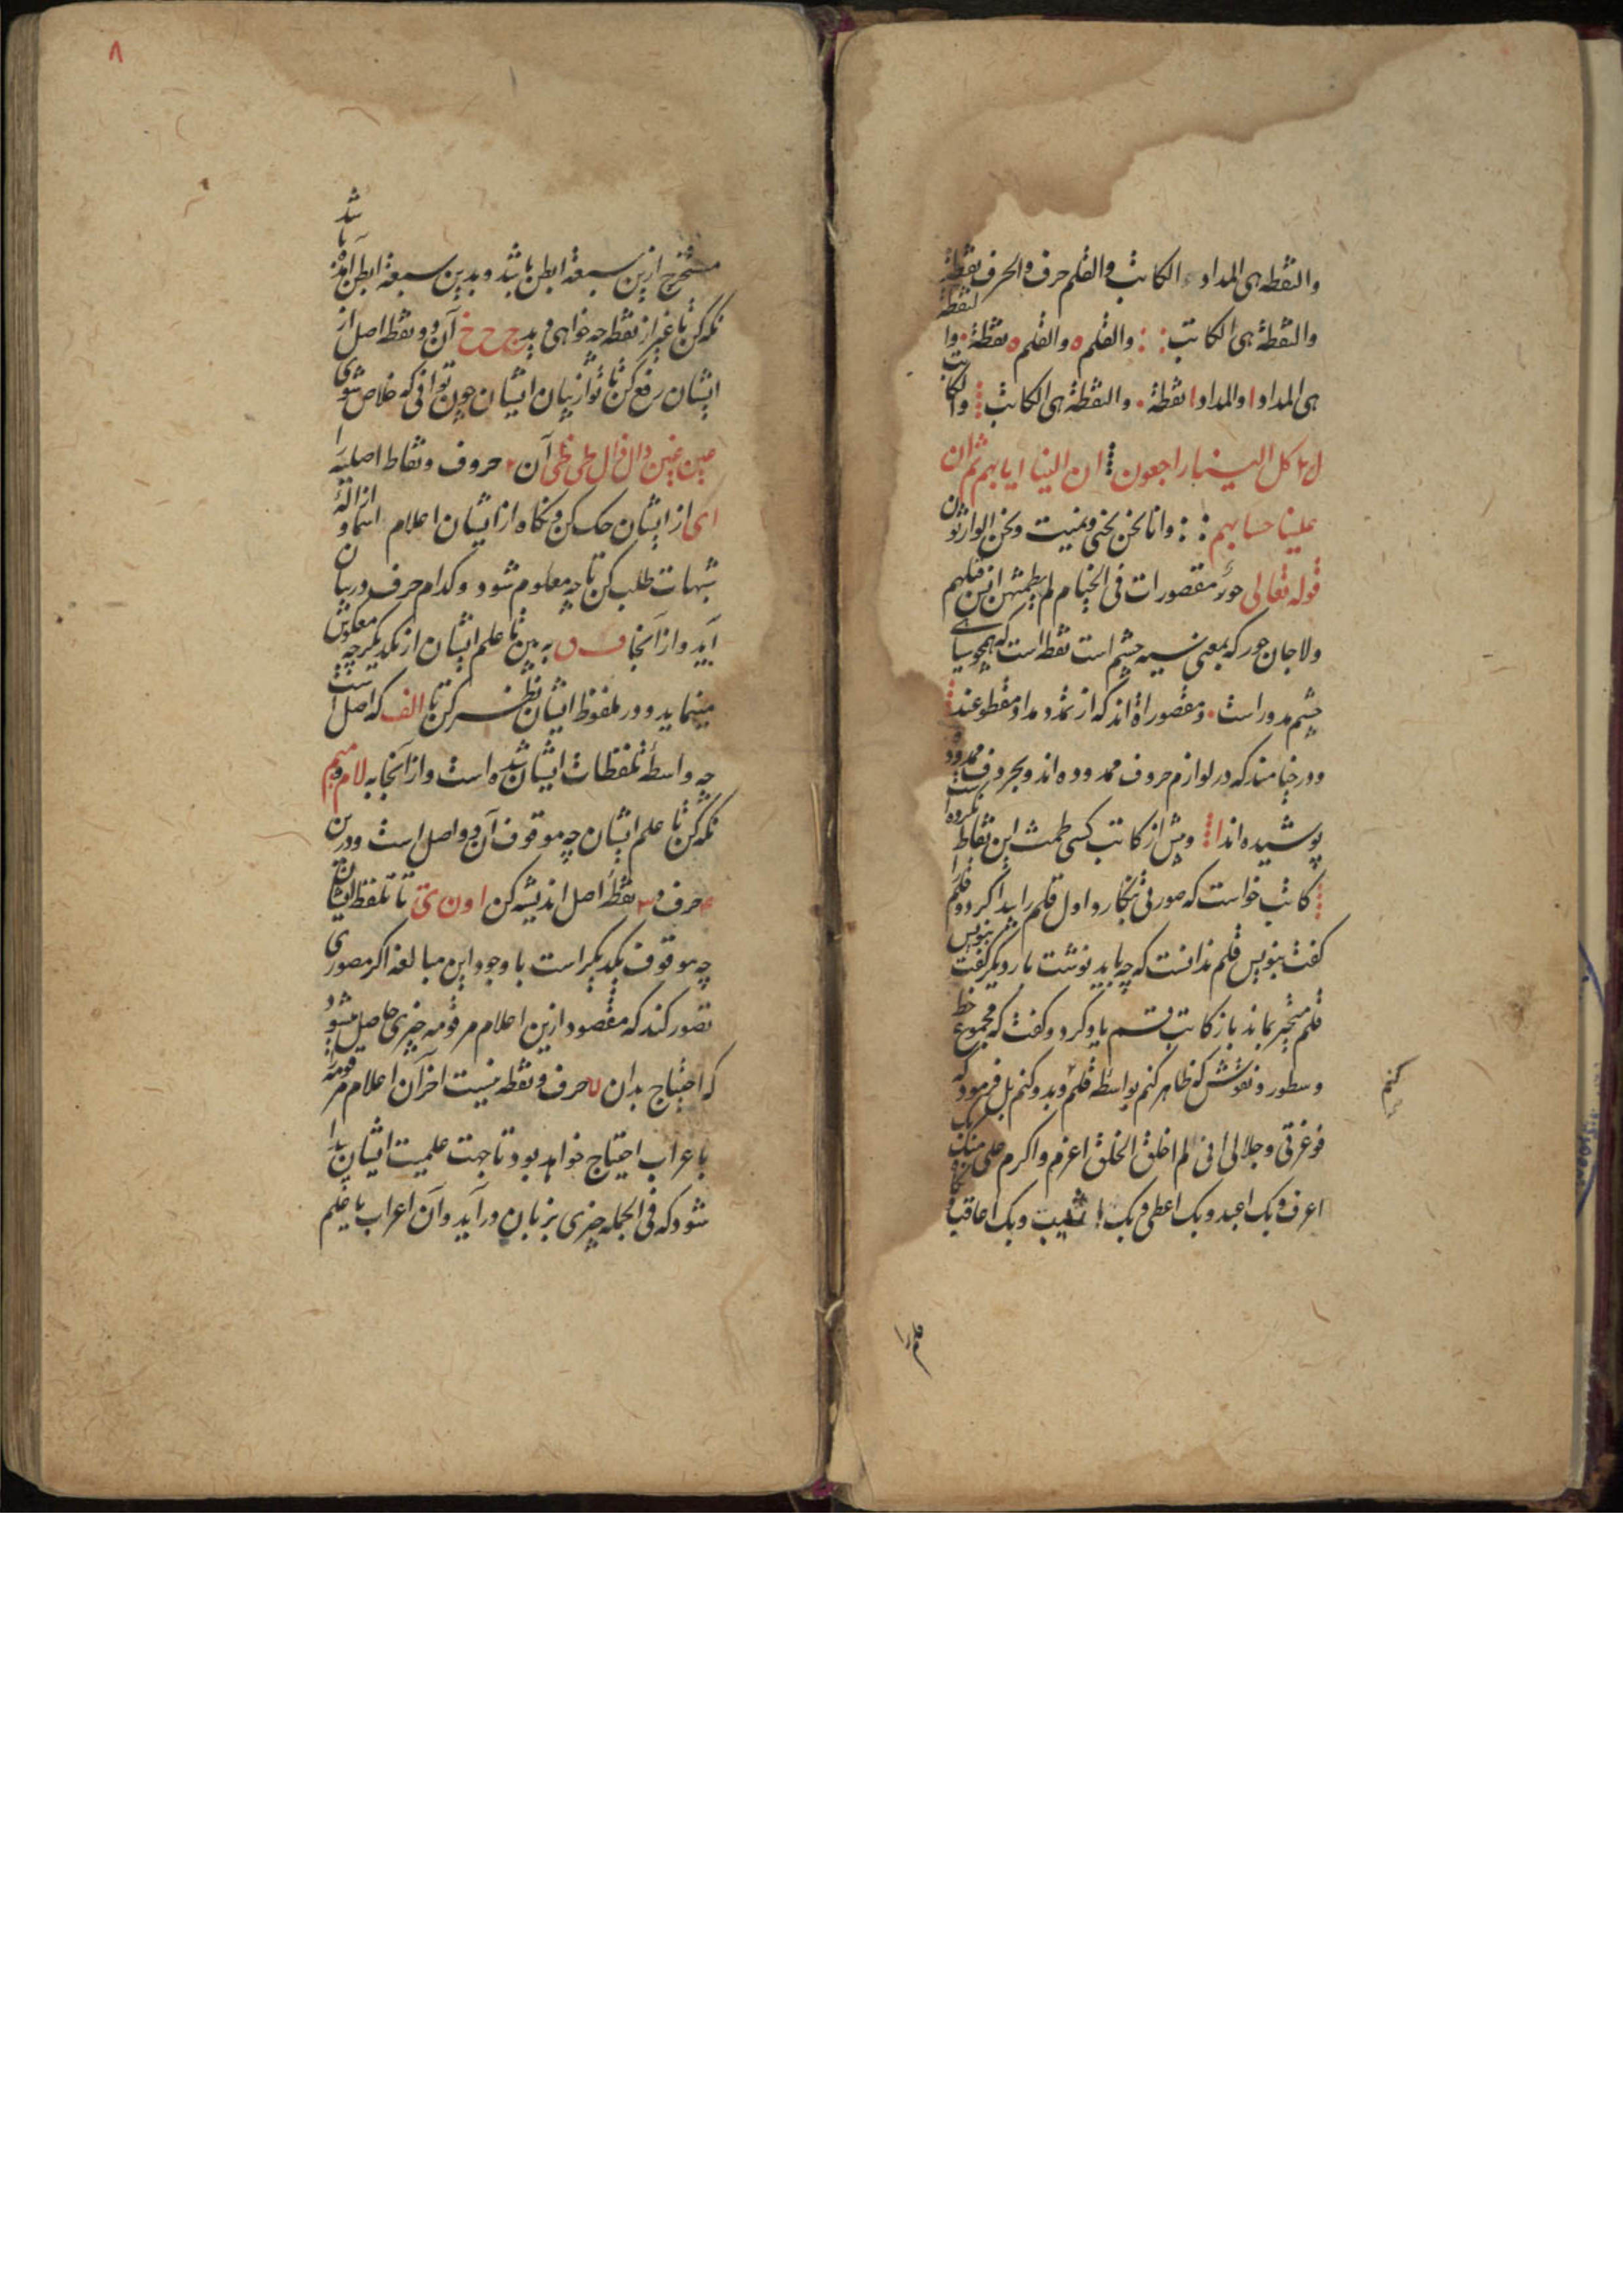 والنقطه هی المداد الکاتب والقلم حرف والحرف نقطة
والنقطة هی الکاتب والقلم ه والقلم ه نقطة والنقطة
هی المداد ا والمداد ا نقطة والنقطة هی الکاتب والکاتب
کل الینا راجعون ان الینا ایابهم ثم ان
علینا حسابهم وانا نحن نحیی ونمیت ونحن الوارثون
قوله تعالی حور مقصورات فی الخیام لم یطمثهن انس قبلهم
ولا جان حور که بمعنی سیه چشم است نقطه است که همچو سیاهی
چشم مدور است و مقصوراة اند که از تمدد مداد مقطوعند
و در خیامند که در لوازم حروف ممدوده اند و بحروف ممدوده
پوشیده اند و پیش از کاتب کسی طمث این نقاط نکرده است
کاتب خواست که صورتی بنگارد اول قلم را پیدا کرد و قلم را
کفت بنویس قلم ندانست که چه باید نوشت بار دیکر کفت بنویس
قلم متحیر بماند باز کاتب قسم یاد کرد و کفت که مجموع خط
و سطور و نقوش که ظاهر کنم بواسطه قلم و بدو کنم بل فرمود که
فوعزتی و جلالی انی لم اخلق الخلق اعزم واکرم علی منک بک
اعرف وبک اعبد وبک اعطی وبک اثیب وبک اعاقب
کنم
قلم را
۸
مستخرج ازین سبعة ابطن باشد و بدین سبعة ابطن آمده باشد
نکه کن تا غیر از نقطه چه خواهی دید ج ح خ آن دو نقطه اصل از
ایشان رفع کن تا تو از بیان ایشان چون توانی که خلاص شوی
عین غین دال ذال طی ظی آن حروف و نقاط اصلیه را
ای از ایشان حک کن و نکاه از ایشان اعلام اسما و ازالهٔ
شبهات طلب کن تا چه معلوم شود و کدام حرف در بیان
آید و از آنجا ف ں به بین تا علم ایشان از یکدیکر چه معکوس
مینماید و در ملفوظ ایشان نظر کن تا الف که اصل است
چه واسطهٔ تلفظات ایشان شده است و از آنجا به لام و میم
نکه کن تا علم ایشان چه موقوف آن دو اصل است و درین
حرف و ۳ نقطه اصل اندیشه کن ا و ن ی تا تلفظ ایشان
چه موقوف یکدیکر است با وجود این مبالغه اکر مصوری
تصور کند که مقصود ازین اعلام مرقومه چیزی حاصل میشود
که احتیاج بدان حرف و نقطه نیست اخر آن اعلام مرقومه
باعراب احتیاج خواهد بود تا جهت علمیت ایشان پیدا
شود که فی الجمله چیزی بزبان درآید و آن اعراب یا علم